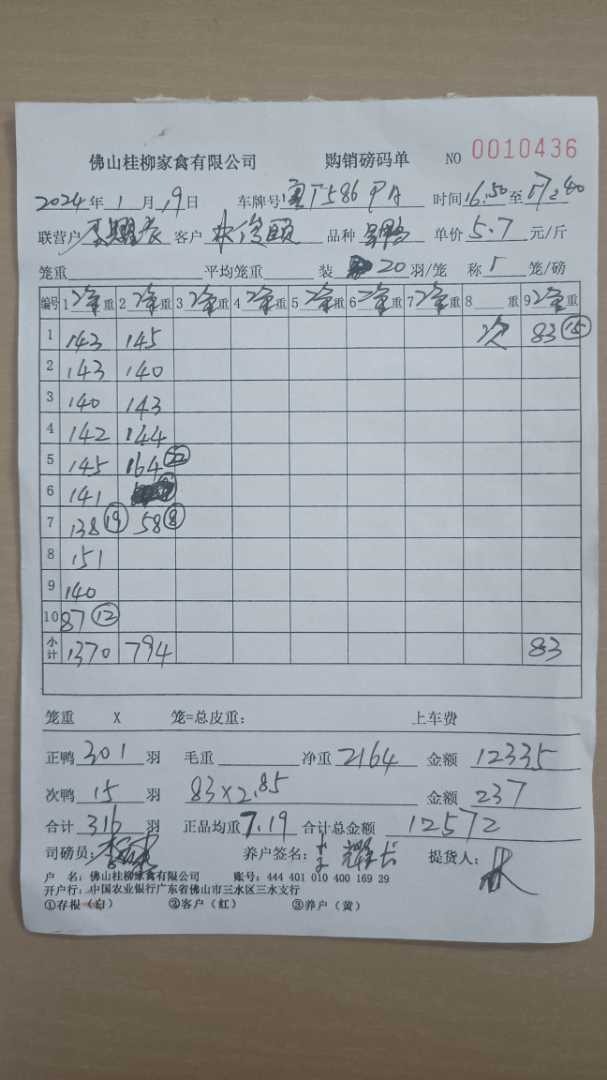 佛山桂柳家禽有限公司 购销磅码单 NO 0010436
2024年1月19日 车牌号 586 时间16.50至17:40
联营户 客户 林俊颐 品种 单价5.7元/斤
笼重 平均笼重 装20羽/笼 称5笼/磅
编号 1净重 2净重 3净重 4净重 5净重 6净重 7净重 8重 9净重
1 143 145 次 83 ⑮
2 143 140
3 140 143
4 142 144
5 145 164 ㉒
6 141
7 138 ⑲ 58 ⑧
8 151
9 140
10 87 ⑫
小计 1370 794 83
笼重 X 笼=总皮重: 上车费
正鸭 301 羽 毛重 净重 2164 金额 12335
次鸭 15 羽 83×2.85 金额 237
合计 316 羽 正品均重 7.19 合计总金额 12572
司磅员: 养户签名: 提货人:
户 名: 佛山桂柳家禽有限公司 账号: 444 401 010 400 169 29
开户行: 中国农业银行广东省佛山市三水区三水支行
①存根(白) ②客户(红) ③养户(黄)